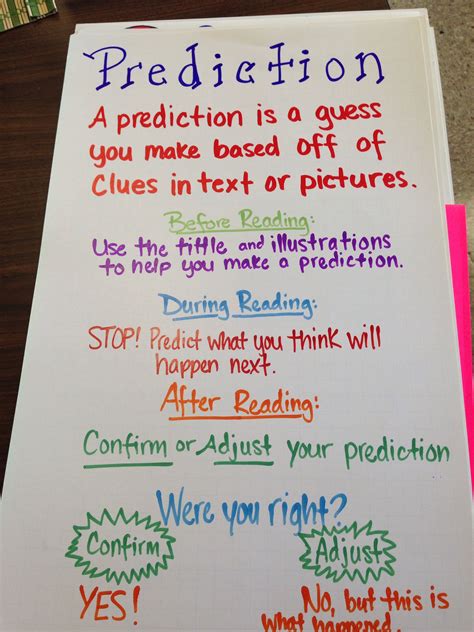 Prediction
A prediction is a guess
you make based off of
Clues in text or pictures.
Before Reading:
Use the tittle and illustrations
to help you make a prediction.
During Reading:
STOP! Predict what you think will
happen next.
After Reading:
Confirm or Adjust your prediction
Were you right?
Confirm
YES!
Adjust
No, but this is
what happened.